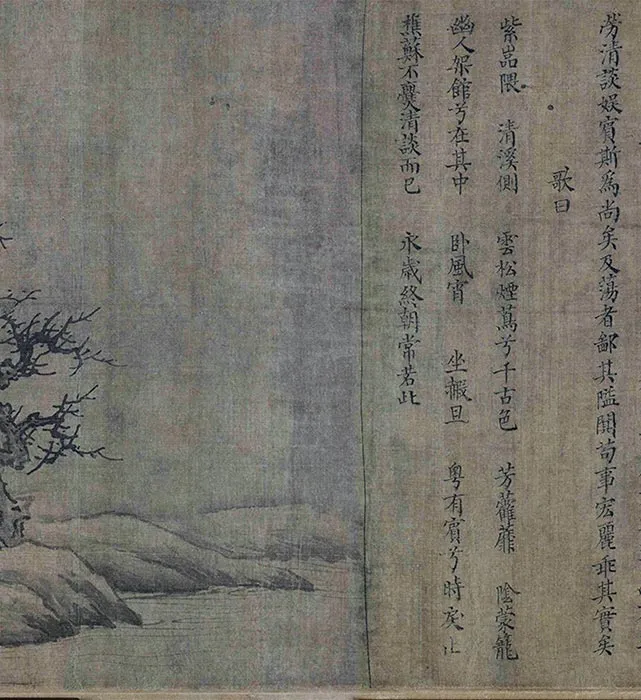 勞清談娛賓斯為尚矣及蕩者鄙其隘闃苟事宏麗乖其實矣
歌曰
紫嵓隈 清溪側 雲松煙蔦兮千古色 芳藿蘼 陰蒙籠
幽人架館兮在其中 卧風宵 坐赮旦 粵有賓兮時戾止
樵蘇不爨清談而已 永歲終朝常若此